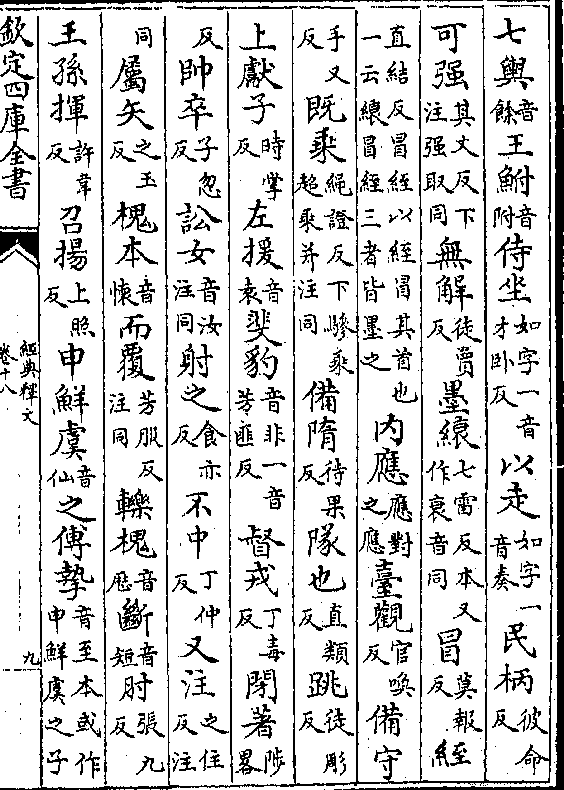 七輿音餘王鮒音附侍坐如字一音才卧反以走如字一音奏民柄彼命反
可强其丈反下注强取同無解徒賣反墨縗七雷反本又作衰音同冒莫報反絰
直結反冒絰以絰冒其首也一云縗冒絰三者皆墨之内應應對之應臺觀官喚反備守
手又反既乗繩證反下驂乗超乗并注同備隋待果反隊也直類反跳徒彫反
上獻子時掌反左援音袁斐豹音非一音芳匪反督戎丁毒反閉著陟畧
反帥卒子忽反訟女音汝注同射之食亦反不中丁仲反又注之住反注
同屬矢之玉反槐本音懐而覆芳服反注同轢槐音歷斷音短肘張九反
王孫揮許韋反召揚上照反申鮮虞音仙之傅摯音至本或作申鮮虞之子
欽定四庫全書
經典釋文
卷十八
九